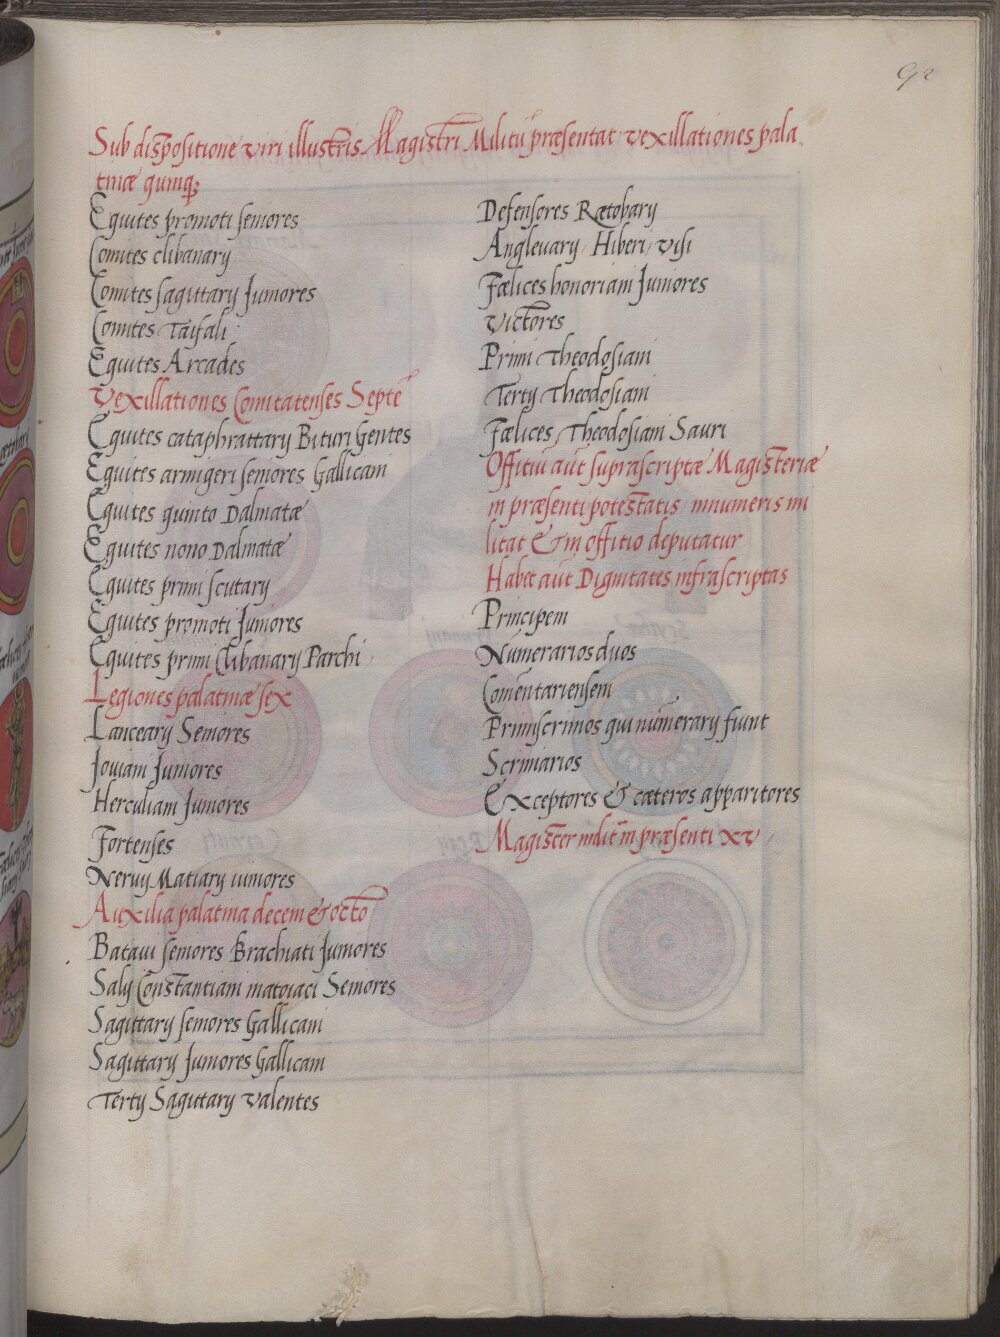 92
Sub dispositione viri illustris Magistri Militũ præsentat vexillationes pala-
tinæ quinq;
Equites promoti seniores
Comites clibanarij
Comites sagittarij Juniores
Comites Taifali
Equites Arcades
Vexillationes Comitatenses Septẽ
Equites cataphrattarij Bituri Gentes
Equites armigeri seniores Gallicani
Equites quinto Dalmatæ
Equites nono Dalmatæ
Equites primi scutarij
Equites promoti Juniores
Equites primi Clibanarij Parthi
Legiones palatinæ sex
Lancearij Seniores
Joviani Juniores
Herculiani Juniores
Fortenses
Nervij Matiarij iuniores
Auxilia palatina decem & octo
Batavi seniores Brachiati Juniores
Salij Constantiani matoiaci Seniores
Sagittarij seniores Gallicani
Sagittarij Juniores Gallicani
Tertij Sagittarij Valentes
Defensores Rætobarij
Anglevarij Hiberi visi
Fælices honoriani Juniores
Victores
Primi Theodosiani
Tertij Theodosiani
Fælices Theodosiani Sauri
Offitiũ aũt suprascriptæ Magisteriæ
in præsenti potestatis innumeris mi
litat & in offitio deputatur
Habet aũt Dignitates infrascriptas
Principem
Numerarios duos
Comentariensem
Primiscrinios qui numerarij fiunt
Scriniarios
Exceptores & cæteros apparitores
Magister milit in præsenti XV